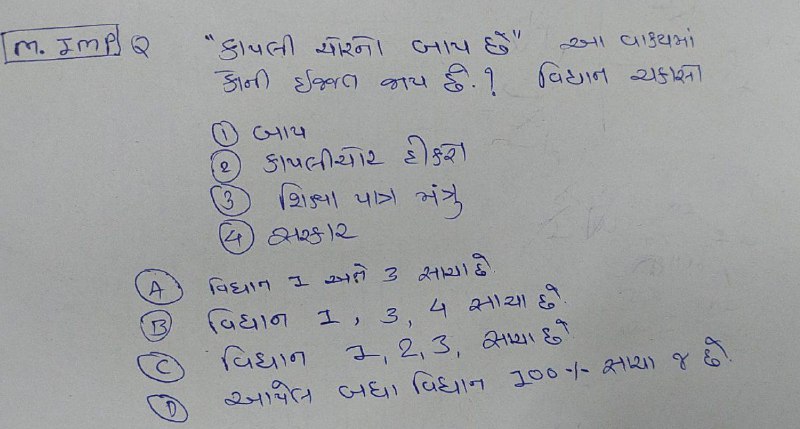 M. IMP Q "કાપલી ચોરનો બાપ છે" આ વાક્યમાં
કોની ઇજ્જત જાય છે.? વિધાન ચકાસો
① બાપ
② કાપલીચોર દીકરો
③ શિક્ષા પાત્ર મંત્રુ
④ સરકાર
Ⓐ વિધાન 1 અને 3 સાચા છે.
Ⓑ વિધાન 1, 3, 4 સાચા છે.
Ⓒ વિધાન 1, 2, 3, સાચા છે.
Ⓓ આપેલ બધા વિધાન 100 % સાચા જ છે.